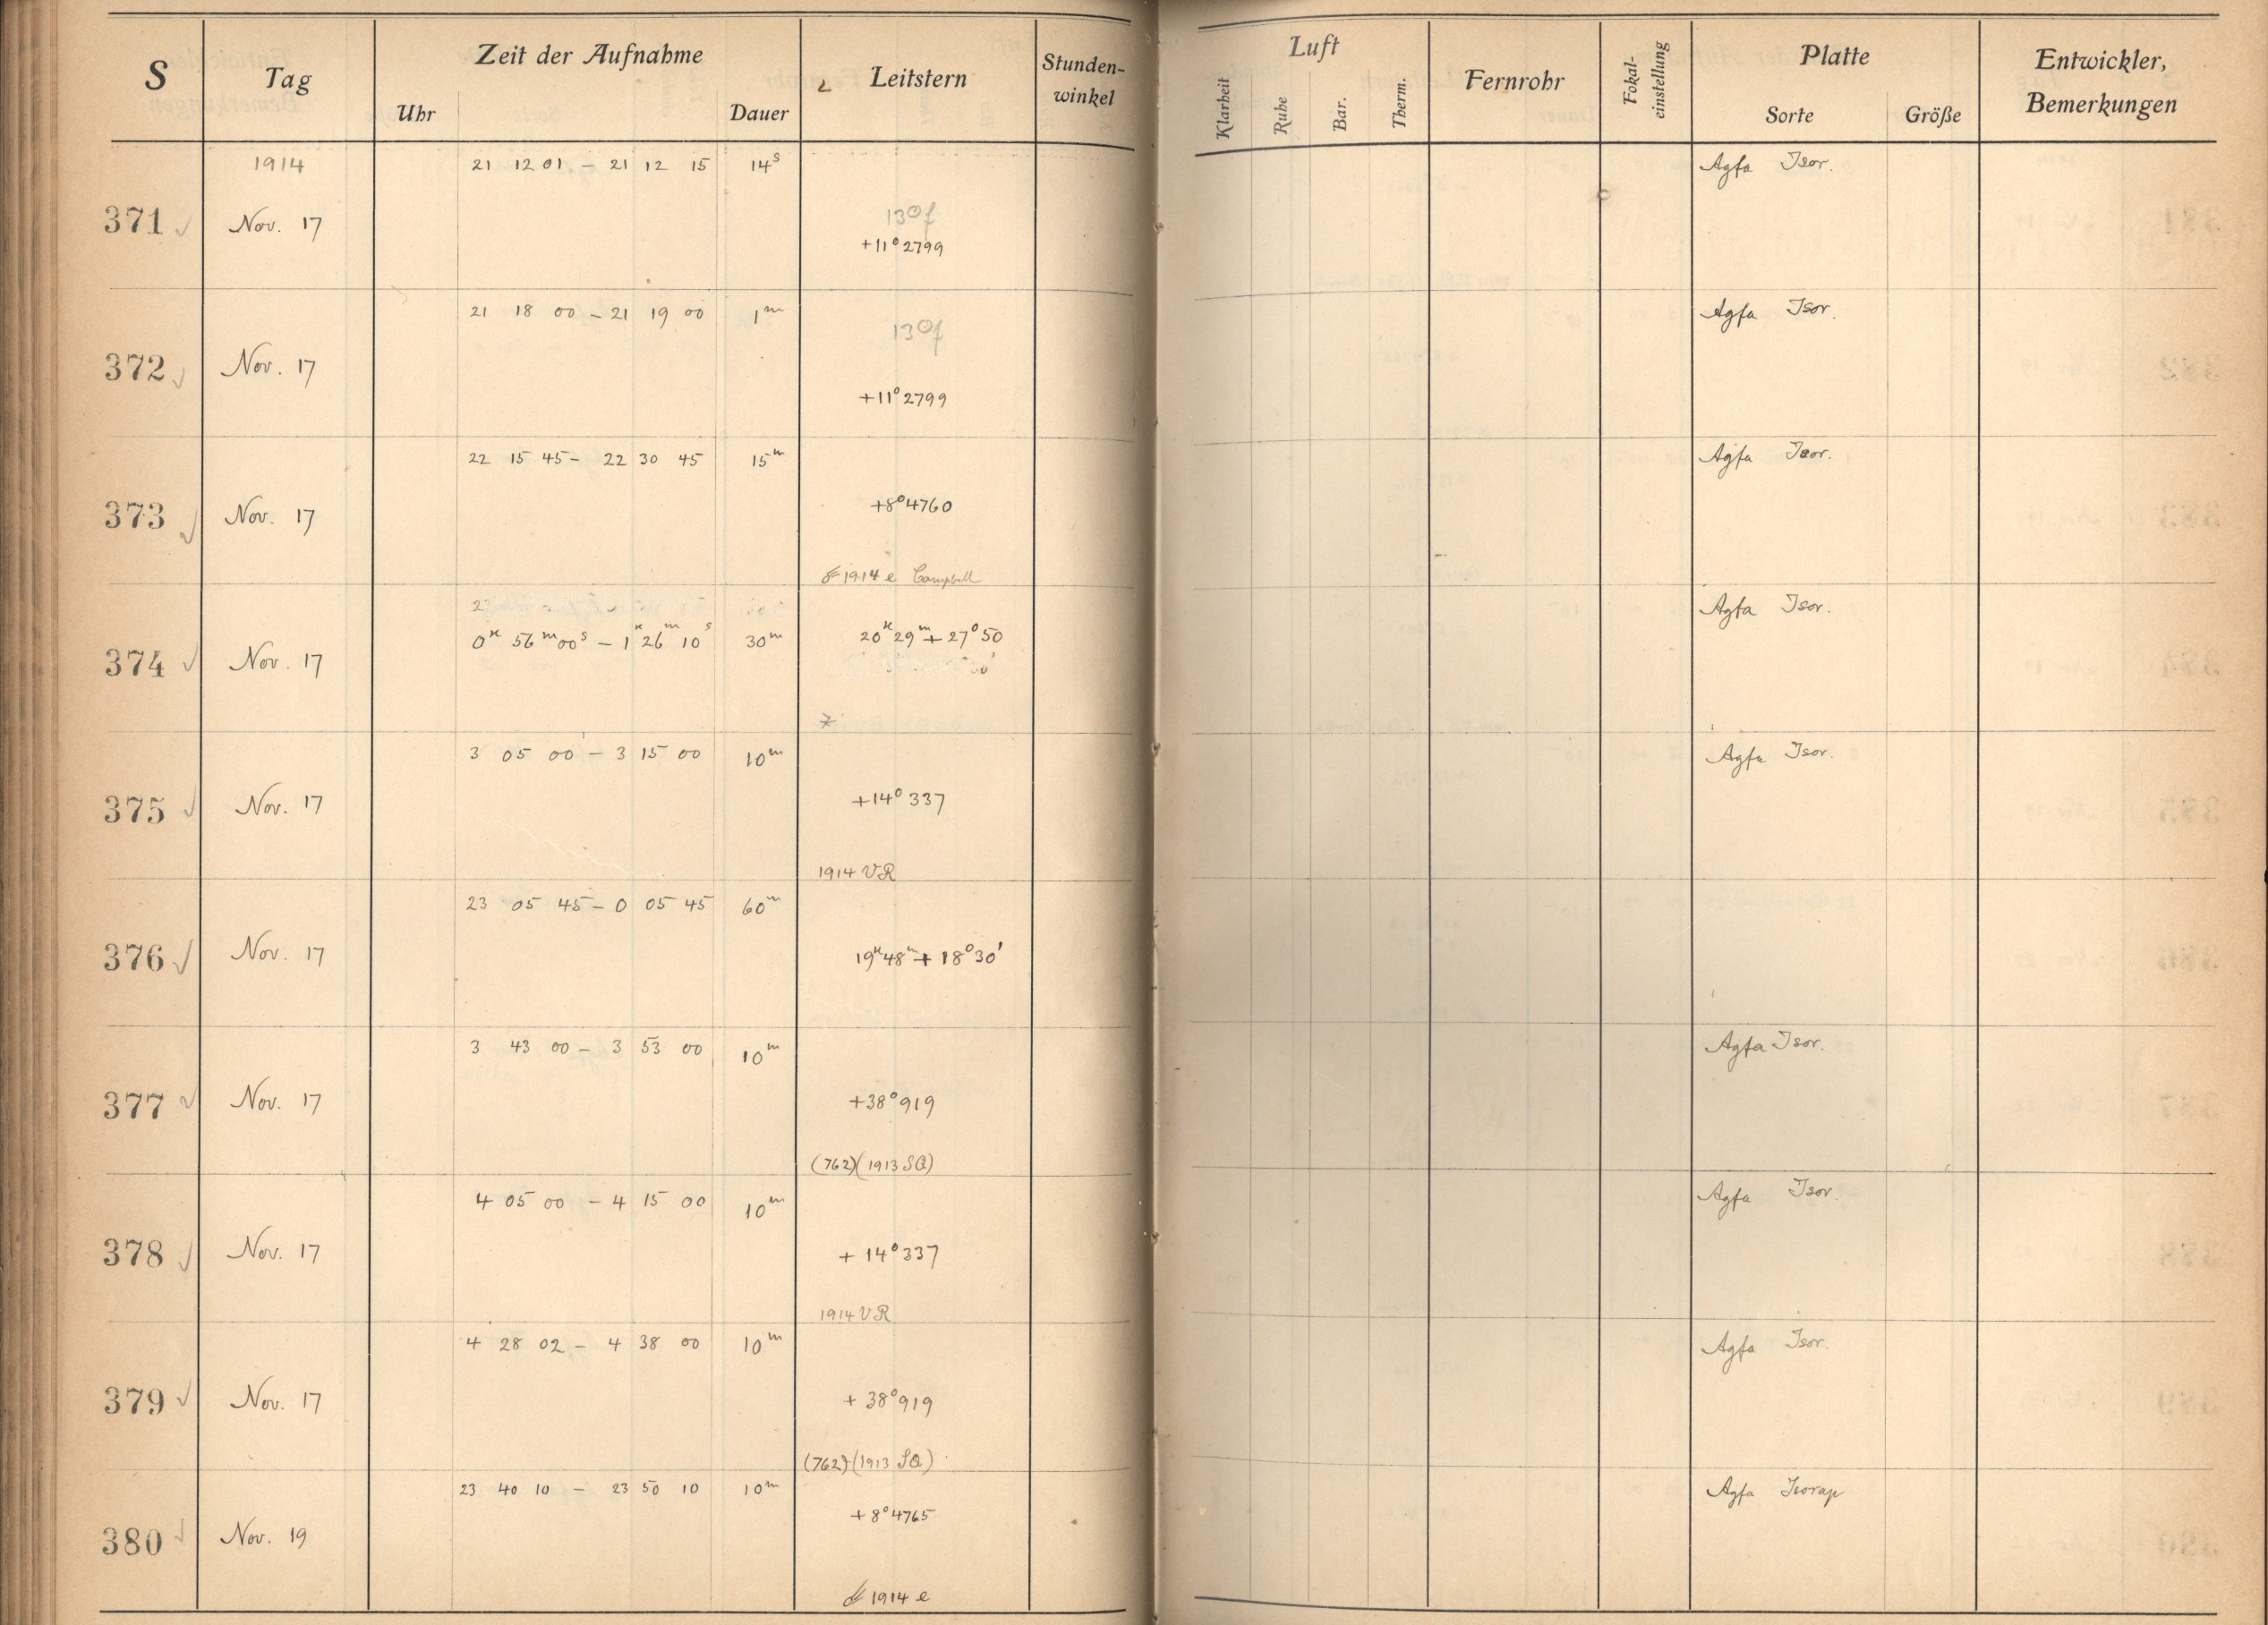 S Tag Zeit der Aufnahme Leitstern Stunden-winkel Luft Fernrohr Fokal-einstellung Platte Entwickler, Bemerkungen
Uhr Dauer Klarheit Ruhe Bar. Therm. Sorte Größe
1914 21 12 01 – 21 12 15 14s Agfa Isor.
371 Nov. 17
+11° 2799
21 18 00 – 21 19 00 1m Agfa Isor.
372 Nov. 17
+11° 2799
22 15 45 – 22 30 45 15m Agfa Isor.
373 Nov. 17 +8° 4760
1914 e Campbell
Agfa Isor.
0h 56m 00s – 1h 26m 10s 30m 20h 29m + 27° 50
374 Nov. 17
3 05 00 – 3 15 00 10m Agfa Isor.
375 Nov. 17 +14° 337
1914 VR
23 05 45 – 0 05 45 60m
376 Nov. 17 19h 48m + 18° 30'
3 43 00 – 3 53 00 10m Agfa Isor.
377 Nov. 17 +38° 919
(762) (1913 SQ)
4 05 00 – 4 15 00 10m Agfa Isor.
378 Nov. 17 + 14° 337
1914 VR
4 28 02 – 4 38 00 10m Agfa Isor.
379 Nov. 17 + 38° 919
(762) (1913 SQ)
23 40 10 – 23 50 10 10m Agfa Isorap
+ 8° 4765
380 Nov. 19
1914 e